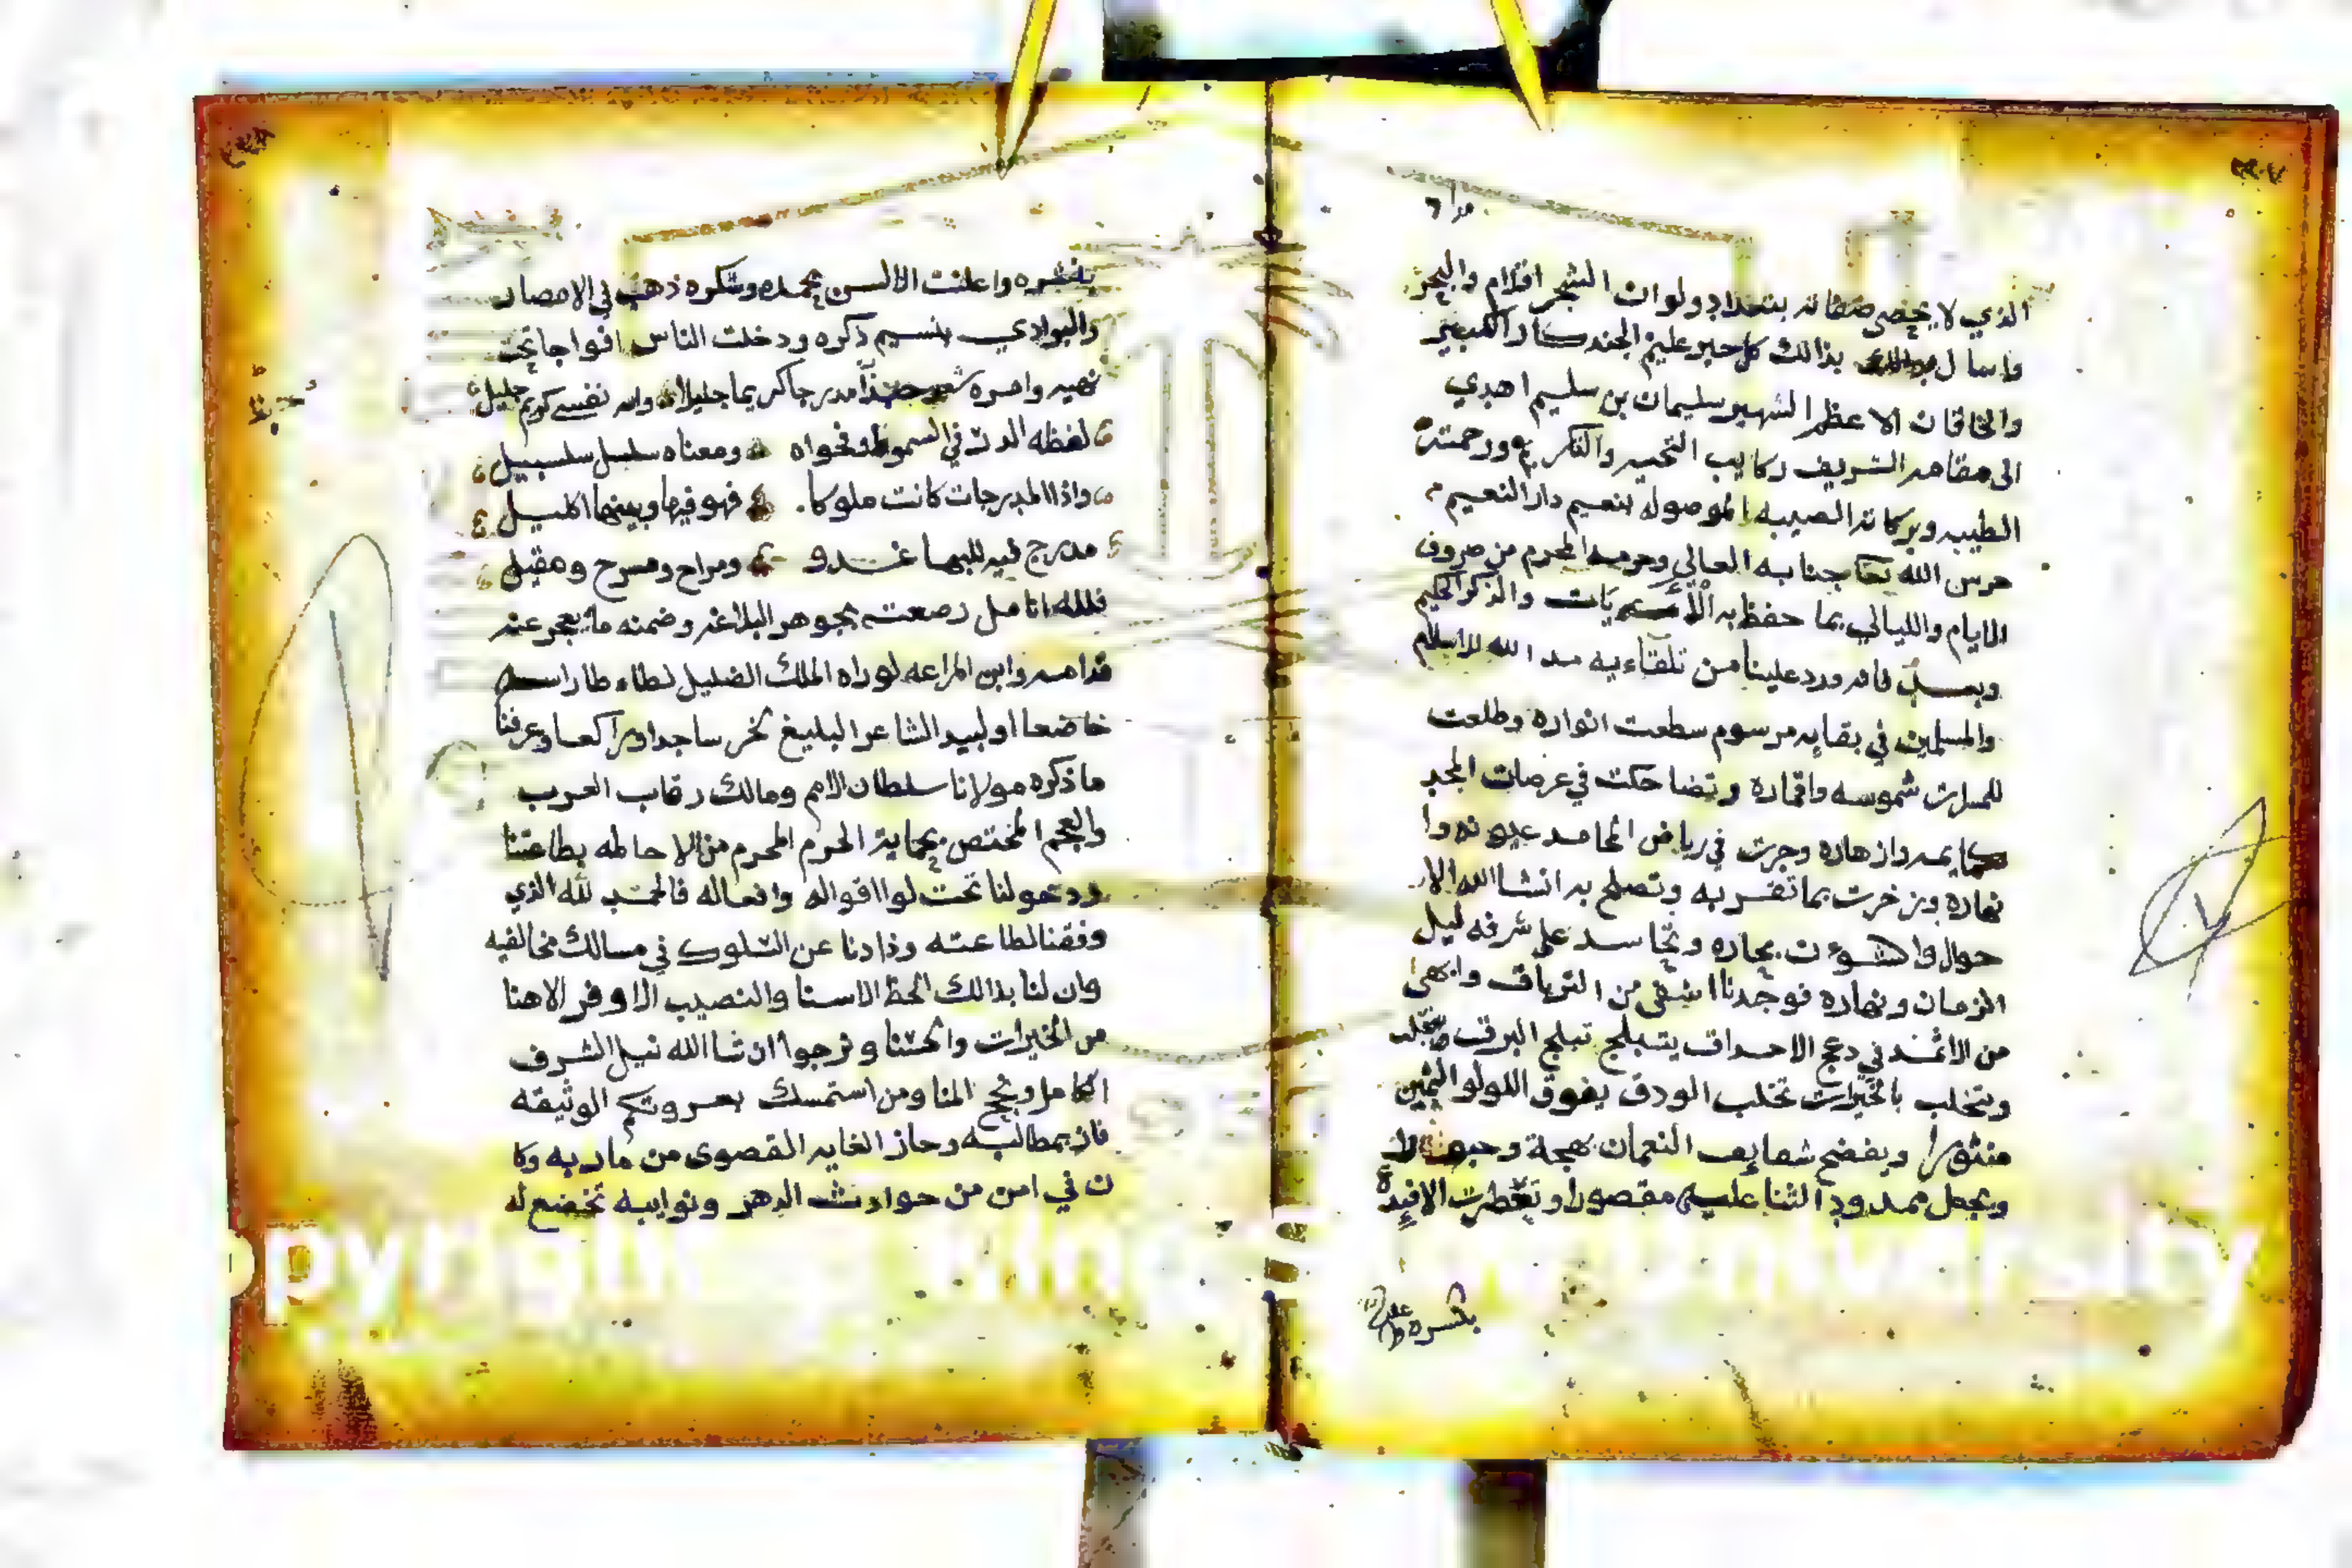 الذي لا يحصى صفاته بتعداد ولو ان الشجر اقلام والبحر
واسال بذالك كل حبر عليم الجند كار الكبير
والخاقان الاعظم الشهير سليمان بن سليم اهدي
الى مقامه الشريف ركايب التحيه والتكريم ورحمته
الطيبه وبركاته الصيبه الموصوله بنعيم دار النعيم
حرس الله بها جنابه العالي وحرمه المحرم من صروف
الايام والليالي بما حفظ به الايات والذكر الحكيم
وبعد فانه ورد علينا من تلقاءيه مد الله للاسلام
والمسلمين في بقايه مرسوم سطعت انواره وطلعت
للمسرات شموسه واقماره وتضاحكت في عرصات المجد
كمايمه وازهاره وجرت في رياض المحامد عيونه وا
نهاره وزخرت بما تقر به وتصلح به انشا الله الا
حوال والشوءن بحاره وتحاسد على شرفه ليل
الزمان ونهاره فوجدناه اشفى من الترياق وابهى
من الاثمد في دعج الاحداق يتبلج تبلج البرق
ويتحلب بالخيرات تحلب الودق يفوق اللولو الثمين
منثورا ويفضح شقايق النعمان بهجة وحبورا
ويجعل ممدود الثنا عليه مقصورا وتعطرت الافيد
بنشره
بنشره واعلنت الالسن بحمده وشكره ذهب في الامصار
والبوادي بنسيم ذكره ودخلت الناس افواجا تحت
نهيه وامره شعر حبذا مدرجا كريما جليلا وانه نفسي كريم جليل
لفظه الدر في السموط وفحواه ومعناه سلسل سلسبيل
واذا المدرجات كانت ملوكا فهو فيها وبينها اكليل
مدرج فيه للبها غدو ومراح ومسرح ومقيل
فلله انامل رصعته بجوهر البلاغه وضمنه ما يعجر عنه
قدامه وابن المراغه لو راه الملك الضليل لطاطا راسه
خاضعا او لبيد الشاعر البليغ لخر ساجدا وراكعا وعرفنا
ما ذكره مولانا سلطان الامم ومالك رقاب العرب
والعجم المختص بحماية الحرم المحرم من الاحاطه بطاعتنا
ودخولنا تحت لوا اقواله وافعاله فالحمد لله الذي
وفقنا لطاعته وذادنا عن السلوك في مسالك مخالفيه
وان لنا بذالك الحظ الاسنا والنصيب الاوفر الاهنا
من الخيرات والحسنا ونرجوا ان شا الله نيل الشرف
الكامل ونجح المنا ومن استمسك بعروتكم الوثيقه
فاز بمطالبه وحاز الغايه القصوى من ماربه وكا
ن في امن من حوادث الدهر ونوايبه تخضع له